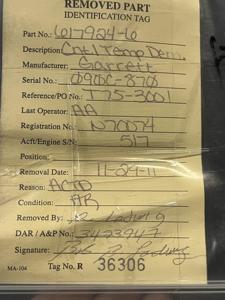 REMOVED PART
IDENTIFICATION TAG
Part No.: 617924-6
Description: Cntl Temp Dem.
Manufacturer: Garrett
Serial No.: 090C-870
Reference/PO No.: T75-3001
Last Operator: AA
Registration No.: N70074
Acft/Engine S/N: 517
Position:
Removal Date: 11-29-11
Reason: ACTD
Condition: AR
Removed By: Ladwig
DAR / A&P No.: 3423947
Signature:
MA-104 Tag No. R 36306